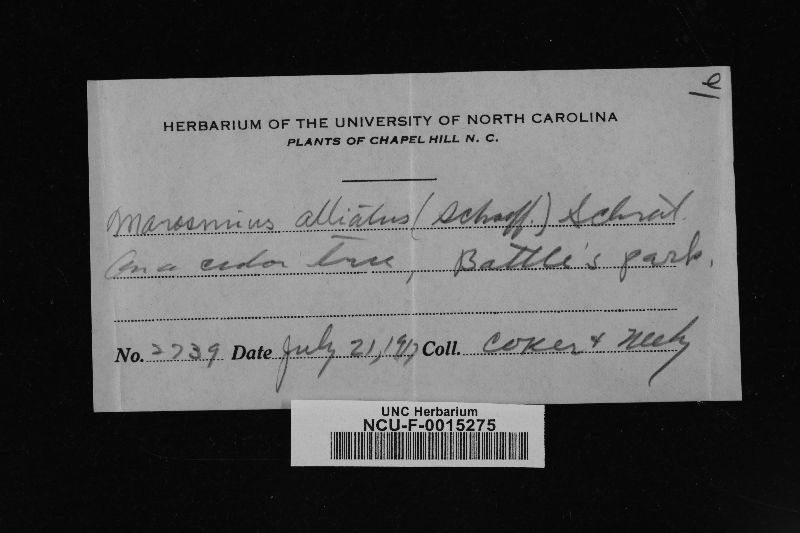 le
HERBARIUM OF THE UNIVERSITY OF NORTH CAROLINA
PLANTS OF CHAPEL HILL N. C.
Marasmius alliatus (Schaeff.) Schroet.
On a cedar tree, Battle's park.
No. 2739 Date July 21, 1917 Coll. Coker &
UNC Herbarium
NCU-F-0015275